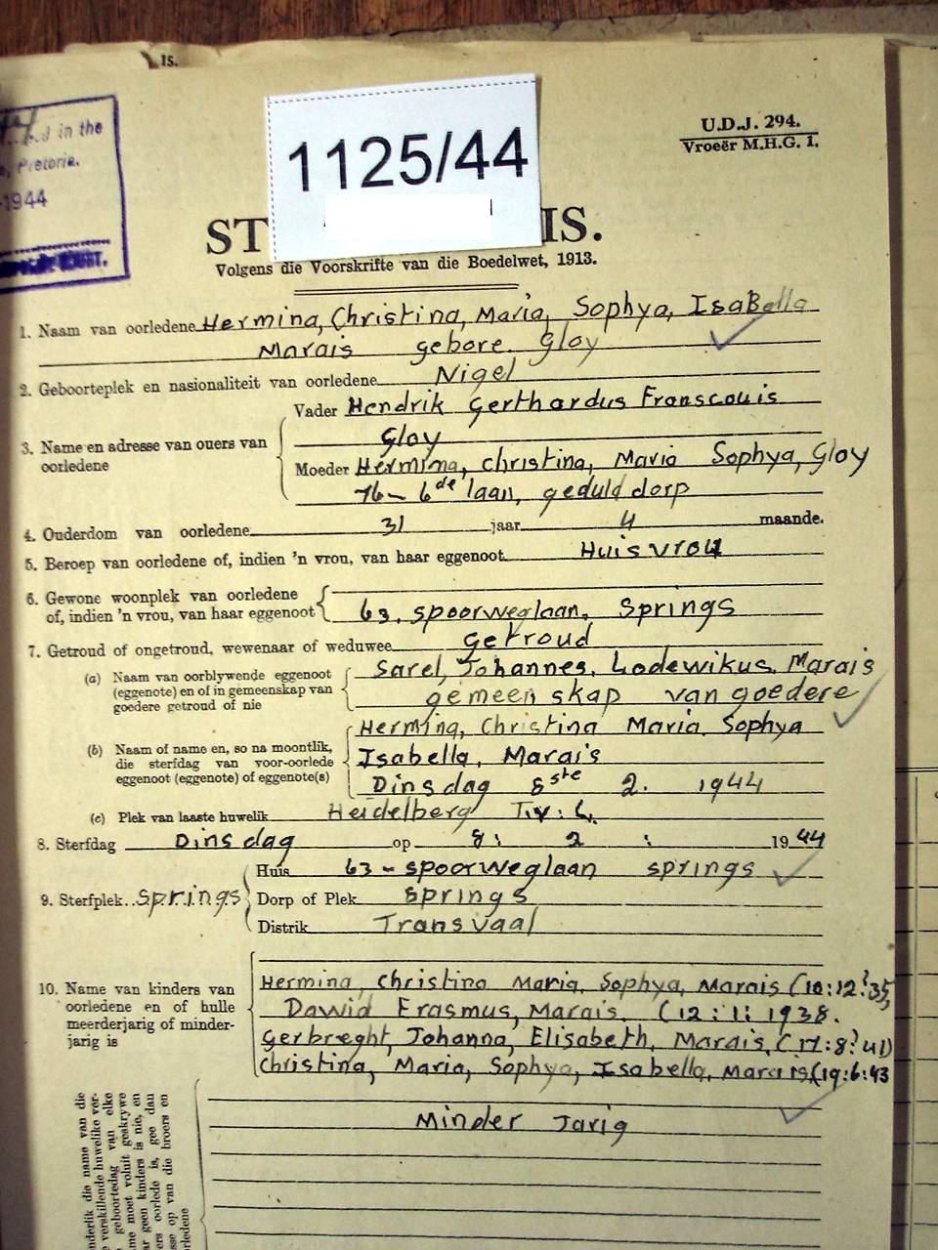 IS.
in the
Pretoria.
1944
1125/44
U.D.J. 294.
Vroeër M.H.G. 1.
ST IS.
Volgens die Voorskrifte van die Boedelwet, 1913.
1. Naam van oorledene Hermina, Christina, Maria, Sophya, IsaBella
Marais gebore Gloy
2. Geboorteplek en nasionaliteit van oorledene Nigel
3. Name en adresse van ouers van oorledene
Vader Hendrik Gerthardus Franscouis
Gloy
Moeder Hermina, Christina, Maria Sophya, Gloy
76 - 6de laan, geduld dorp
4. Ouderdom van oorledene 31 jaar 4 maande.
5. Beroep van oorledene of, indien 'n vrou, van haar eggenoot Huisvrou
6. Gewone woonplek van oorledene
of, indien 'n vrou, van haar eggenoot 63, spoorweglaan, Springs
7. Getroud of ongetroud, wewenaar of weduwee getroud
(a) Naam van oorblywende eggenoot Sarel, Johannes, Lodewikus, Marais
(eggenote) en of in gemeenskap van
goedere getroud of nie gemeenskap van goedere
Herming, Christina Maria Sophya
(b) Naam of name en, so na moontlik, Isabella, Marais
die sterfdag van voor-oorlede
eggenoot (eggenote) of eggenote(s) Dinsdag 8ste 2. 1944
(c) Plek van laaste huwelik Heidelberg Tv:L.
8. Sterfdag Dinsdag op 8: 2 : 1944
Huis 63 - spoorweglaan springs
9. Sterfplek springs Dorp of Plek Springs
Distrik Transvaal
10. Name van kinders van Hermina, Christina Maria, Sophya, Marais (10:12:35)
oorledene en of hulle Dawid Erasmus, Marais. (12:1:1938.
meerderjarig of minder- Gerbreght, Johanna, Elisabeth, Marais, (17:8:41)
jarig is Christina, Maria, Sophya, Isabella, Marais, (19:6:43
Minder Jarig
nderlik die name van die
verskillende huwelike ver-
geboortedag van elke
me moet voluit geskrywe
ar geen kinders is nie, en
ers oorlede is, gee dan
se op van die broers en
rledene